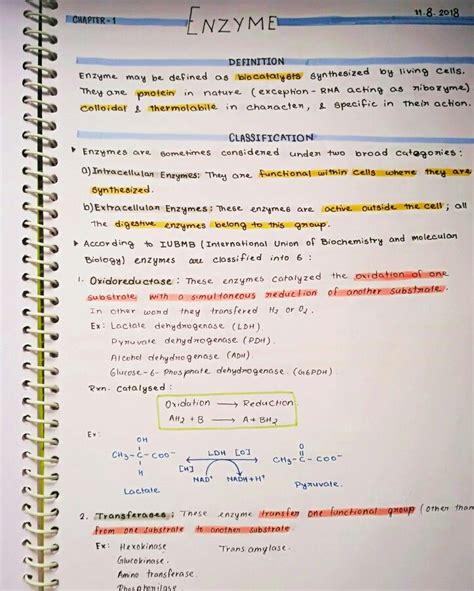 CHAPTER-1
ENZYME
11.8.2018
DEFINITION
Enzyme may be defined as biocatalysts synthesized by living cells.
They are protein in nature (exception - RNA acting as ribozyme)
colloidal & thermolabile in character, & specific in their action.
CLASSIFICATION
Enzymes are sometimes considered under two broad categories:
a) Intracellular Enzymes: They are functional within cells where they are
synthesized.
b) Extracellular Enzymes: These enzymes are active outside the cell; all
the digestive enzymes belong to this group.
According to IUBMB (International Union of Biochemistry and molecular
Biology) enzymes are classified into 6:
1. Oxidoreductase: These enzymes catalyzed the oxidation of one
substrate with a simultaneous reduction of another substrate.
In other word they transfered H2 or O2.
Ex: Lactate dehydrogenase (LDH)
Pyruvate dehydrogenase (PDH).
Alcohol dehydrogenase (ADH)
Glucose-6-Phosphate dehydrogenase. (G6PDH).
Rxn. Catalysed:
Oxidation → Reduction
AH2 + B → A + BH2
Ex:
OH
CH3-C-COO-
H
Lactate
LDH [O]
[H]
NAD+ NADH+H+
O
CH3-C-COO-
Pyruvate.
2. Transferases: These enzyme transfer one functional group (other than
from one substrate to another substrate
Ex: Hexokinase Transamylase.
Glucokinase.
Amino transferase.
Phosphorilase.